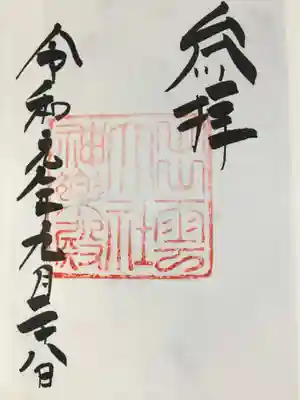 参拝
出雲
大社
神樂殿
令和元年九月二十八日